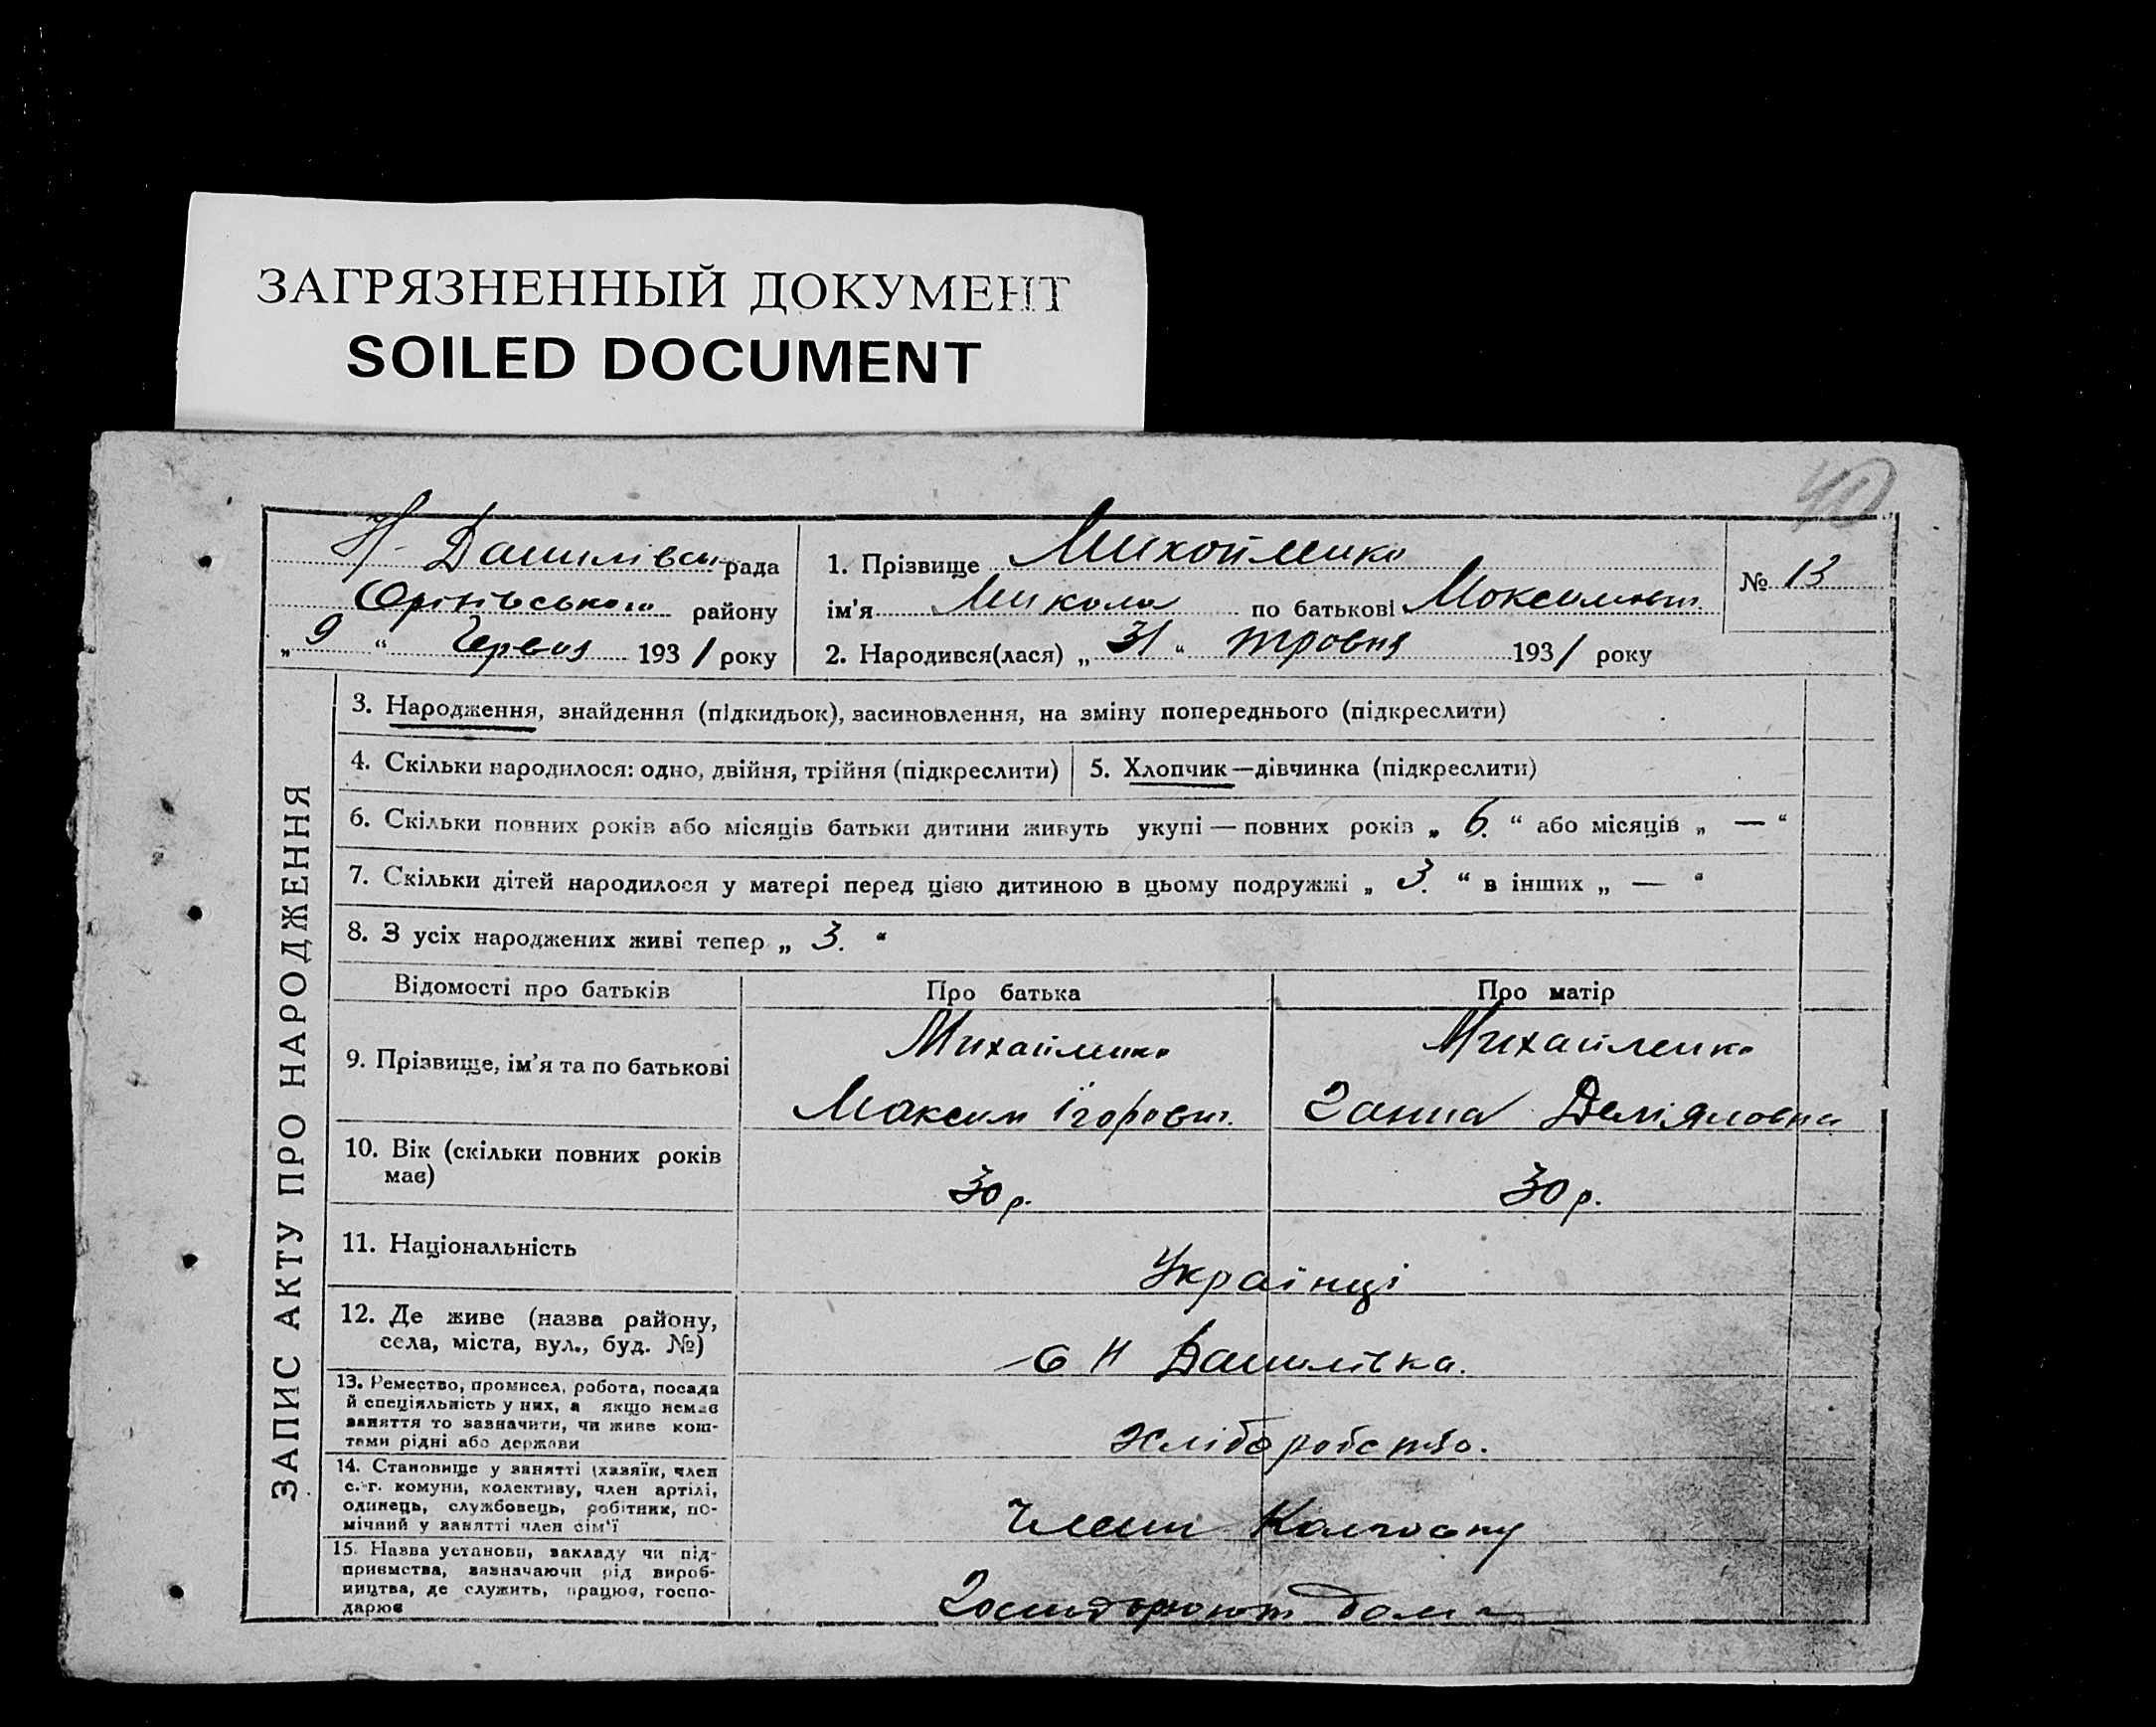 ЗАГРЯЗНЕННЫЙ ДОКУМЕНТ
SOILED DOCUMENT
40
Н-Данилівська рада
Оріхівського району
„ 9 “ Червня 1931 року
1. Прізвище Михайленко
ім'я Микола по батькові Максимович
2. Народився(лася) „ 31 “ травня 1931 року
№ 13
ЗАПИС АКТУ ПРО НАРОДЖЕННЯ
3. Народження, знайдення (підкидьок), засиновлення, на зміну попереднього (підкреслити)
4. Скільки народилося: одно, двійня, трійня (підкреслити)
5. Хлопчик—дівчинка (підкреслити)
6. Скільки повних років або місяців батьки дитини живуть укупі — повних років „ 6. “ або місяців „ — “
7. Скільки дітей народилося у матері перед цією дитиною в цьому подружжі „ 3. “ в інших „ — “
8. З усіх народжених живі тепер „ 3. “
Відомості про батьків
Про батька
Про матір
9. Прізвище, ім'я та по батькові
Михайленко
Максим Ігорович
Михайленко
Ганна
10. Вік (скільки повних років
має)
30 р.
30 р.
11. Національність
Українці
12. Де живе (назва району,
села, міста, вул., буд. №)
с Н Данилівка.
13. Ремество, промисел, робота, посада
й спеціяльність у них, а якщо немає
заняття то зазначити, чи живе кош-
тами рідні або держави
Хліборобство.
14. Становище у занятті (хазяїн, член
с.-г. комуни, колективу, член артілі,
одинець, службовець, робітник, по-
мічний у занятті член сім'ї
Члени Колгоспу
15. Назва установи, закладу чи під-
приємства, зазначаючи рід вироб-
ництва, де служить, працює, госпо-
дарює
Господарюють дома